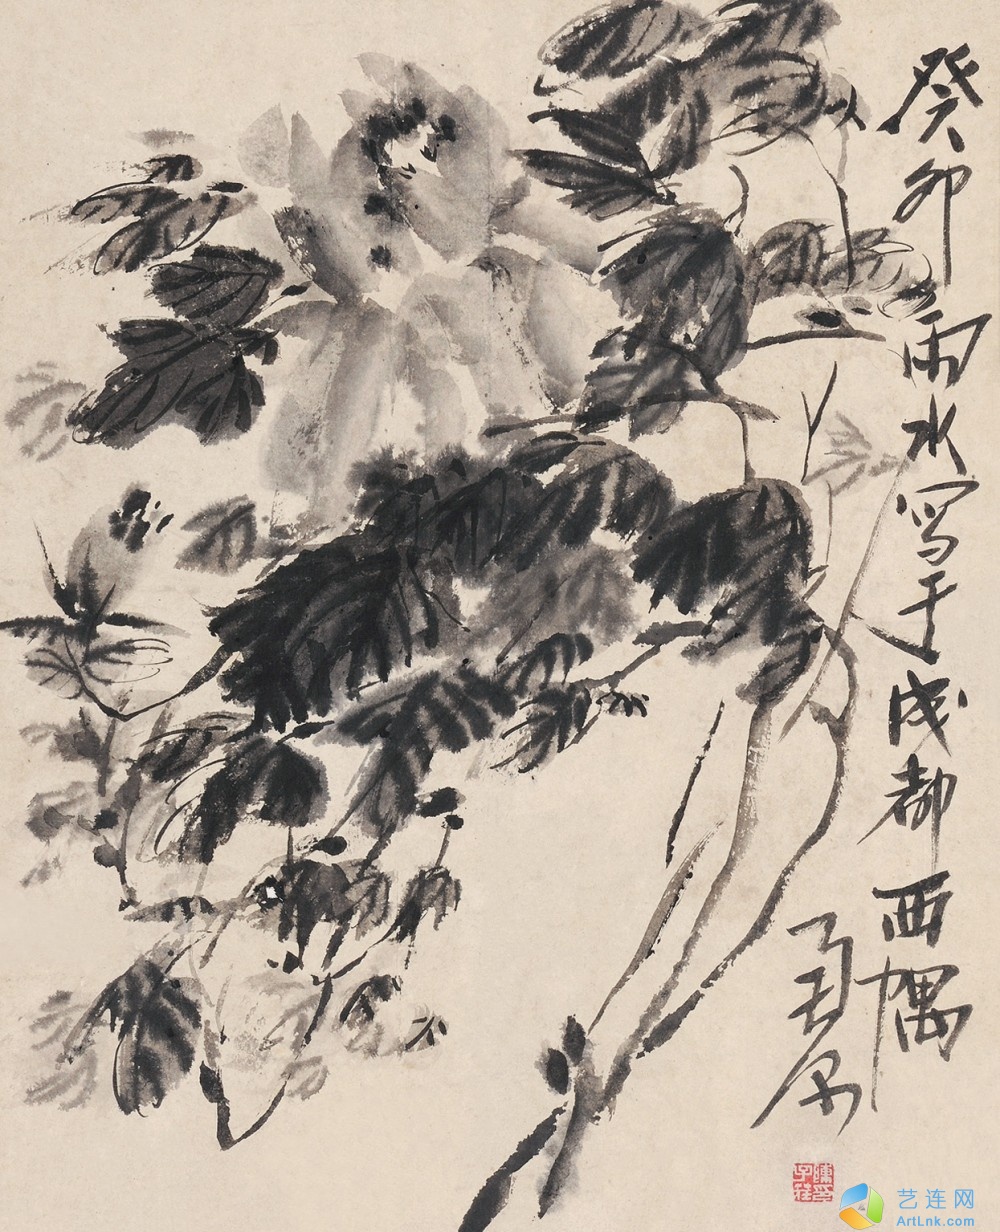 癸卯雨水写于成都西隅
子庄
艺连网
ArtLnk.com